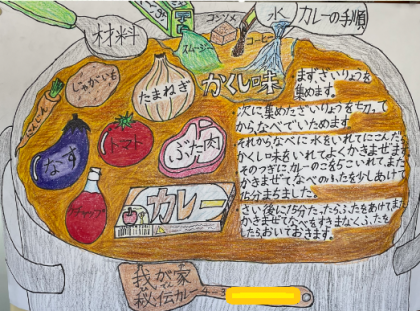 材料
コンソメ
水
カレーの手順
スムージー
コーヒー
かくし味
にんじん
じゃがいも
たまねぎ
なす
トマト
ぶた肉
ケチャップ
カレー
まずざいりょうを
集めます。
・次に、集めたざいりょうを切って
からなべでいためます
それからなべに水をいれてにこんだ
かくし味をいれてよくかきまぜます
そのつぎにカレーのこを5こいれてまた
かきまぜてなべのふたを少しあけて
15分まちました。
・さい後に15分たったらふたをあけてまた
かきまぜてなべをすきまなくふたを
したらおいておきます。
我が家
秘伝カレー
4-3